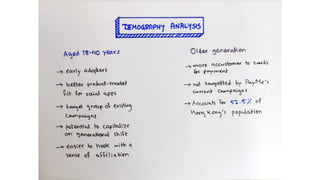 DEMOGRAPHY ANALYSIS
Aged 18-40 years
→ early adopters
→ better product-market
fit for social apps
→ target group of existing
campaigns
→ potential to capitalize
on generational shift
→ easier to hook with a
sense of affiliation
Older generation
→ more accustomed to cards
for payment
→ not targetted by PayMe's
current campaigns
→ Accounts for 52.5% of
Hong Kong's population